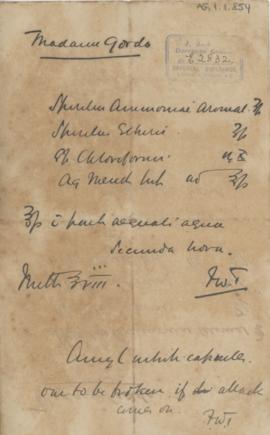 AG.1.1.854
Madame Gordo
2832
Spiritus Ammoniae Aromat
Spiritus Etheris
Sp Chloroformi
Aq Menth pip ad
parti aequali aqua
secunda hora.
Mitte ʒviii. F.W.T
Amyl nitrite capsules
one to be broken if attack
comes on. F.W.T